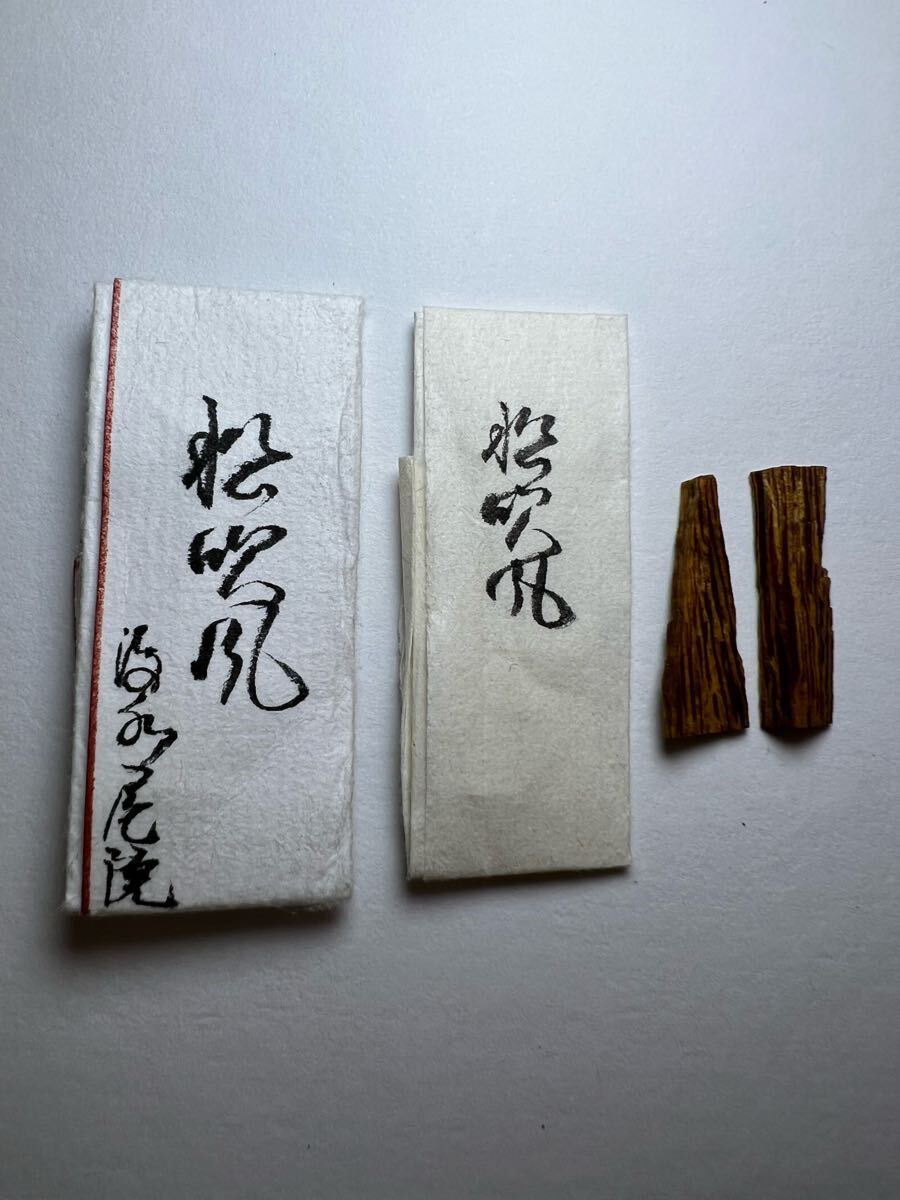 松吹風
後水尾院
松吹風